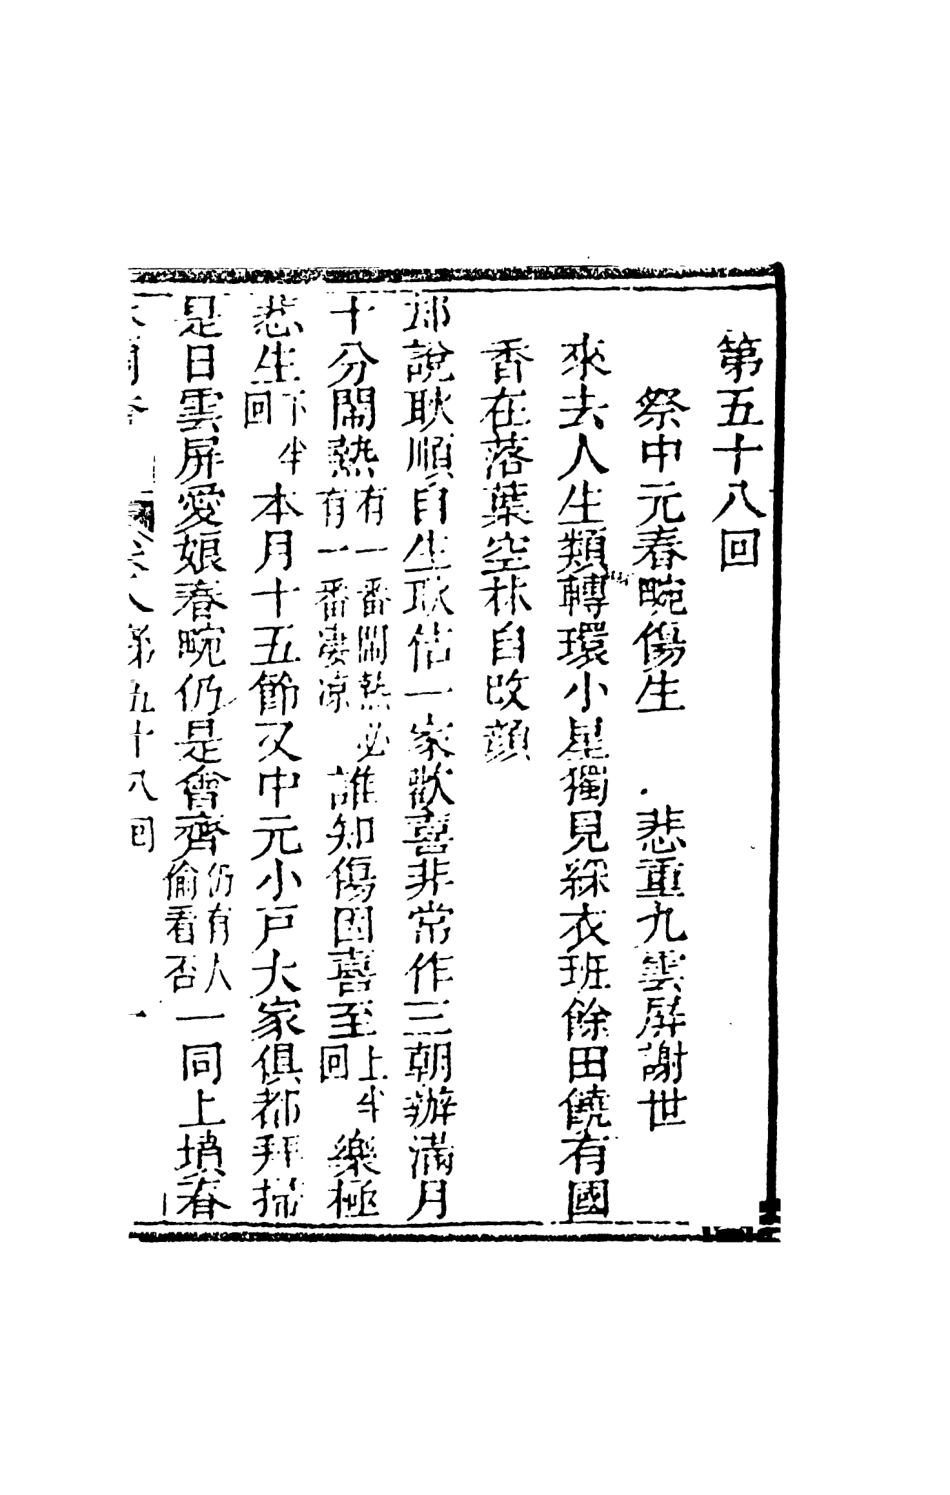 第五十八回
祭中元春畹傷生　悲重九雲屏謝世
來去人生類轉環小星獨見綵衣班餘田饒有國
香在落葉空林自改顏
却說耿順自生耿佶一家歡喜非常作三朝辦滿月
十分鬧熱有一番鬧熱必有一番凄凉誰知傷因喜至上半回樂極
悲生下半回本月十五節又中元小戸大家俱都拜掃
是日雲屏愛娘春畹仍是會齊仍有人偷看否一同上墳春
卷八第五十八回　一